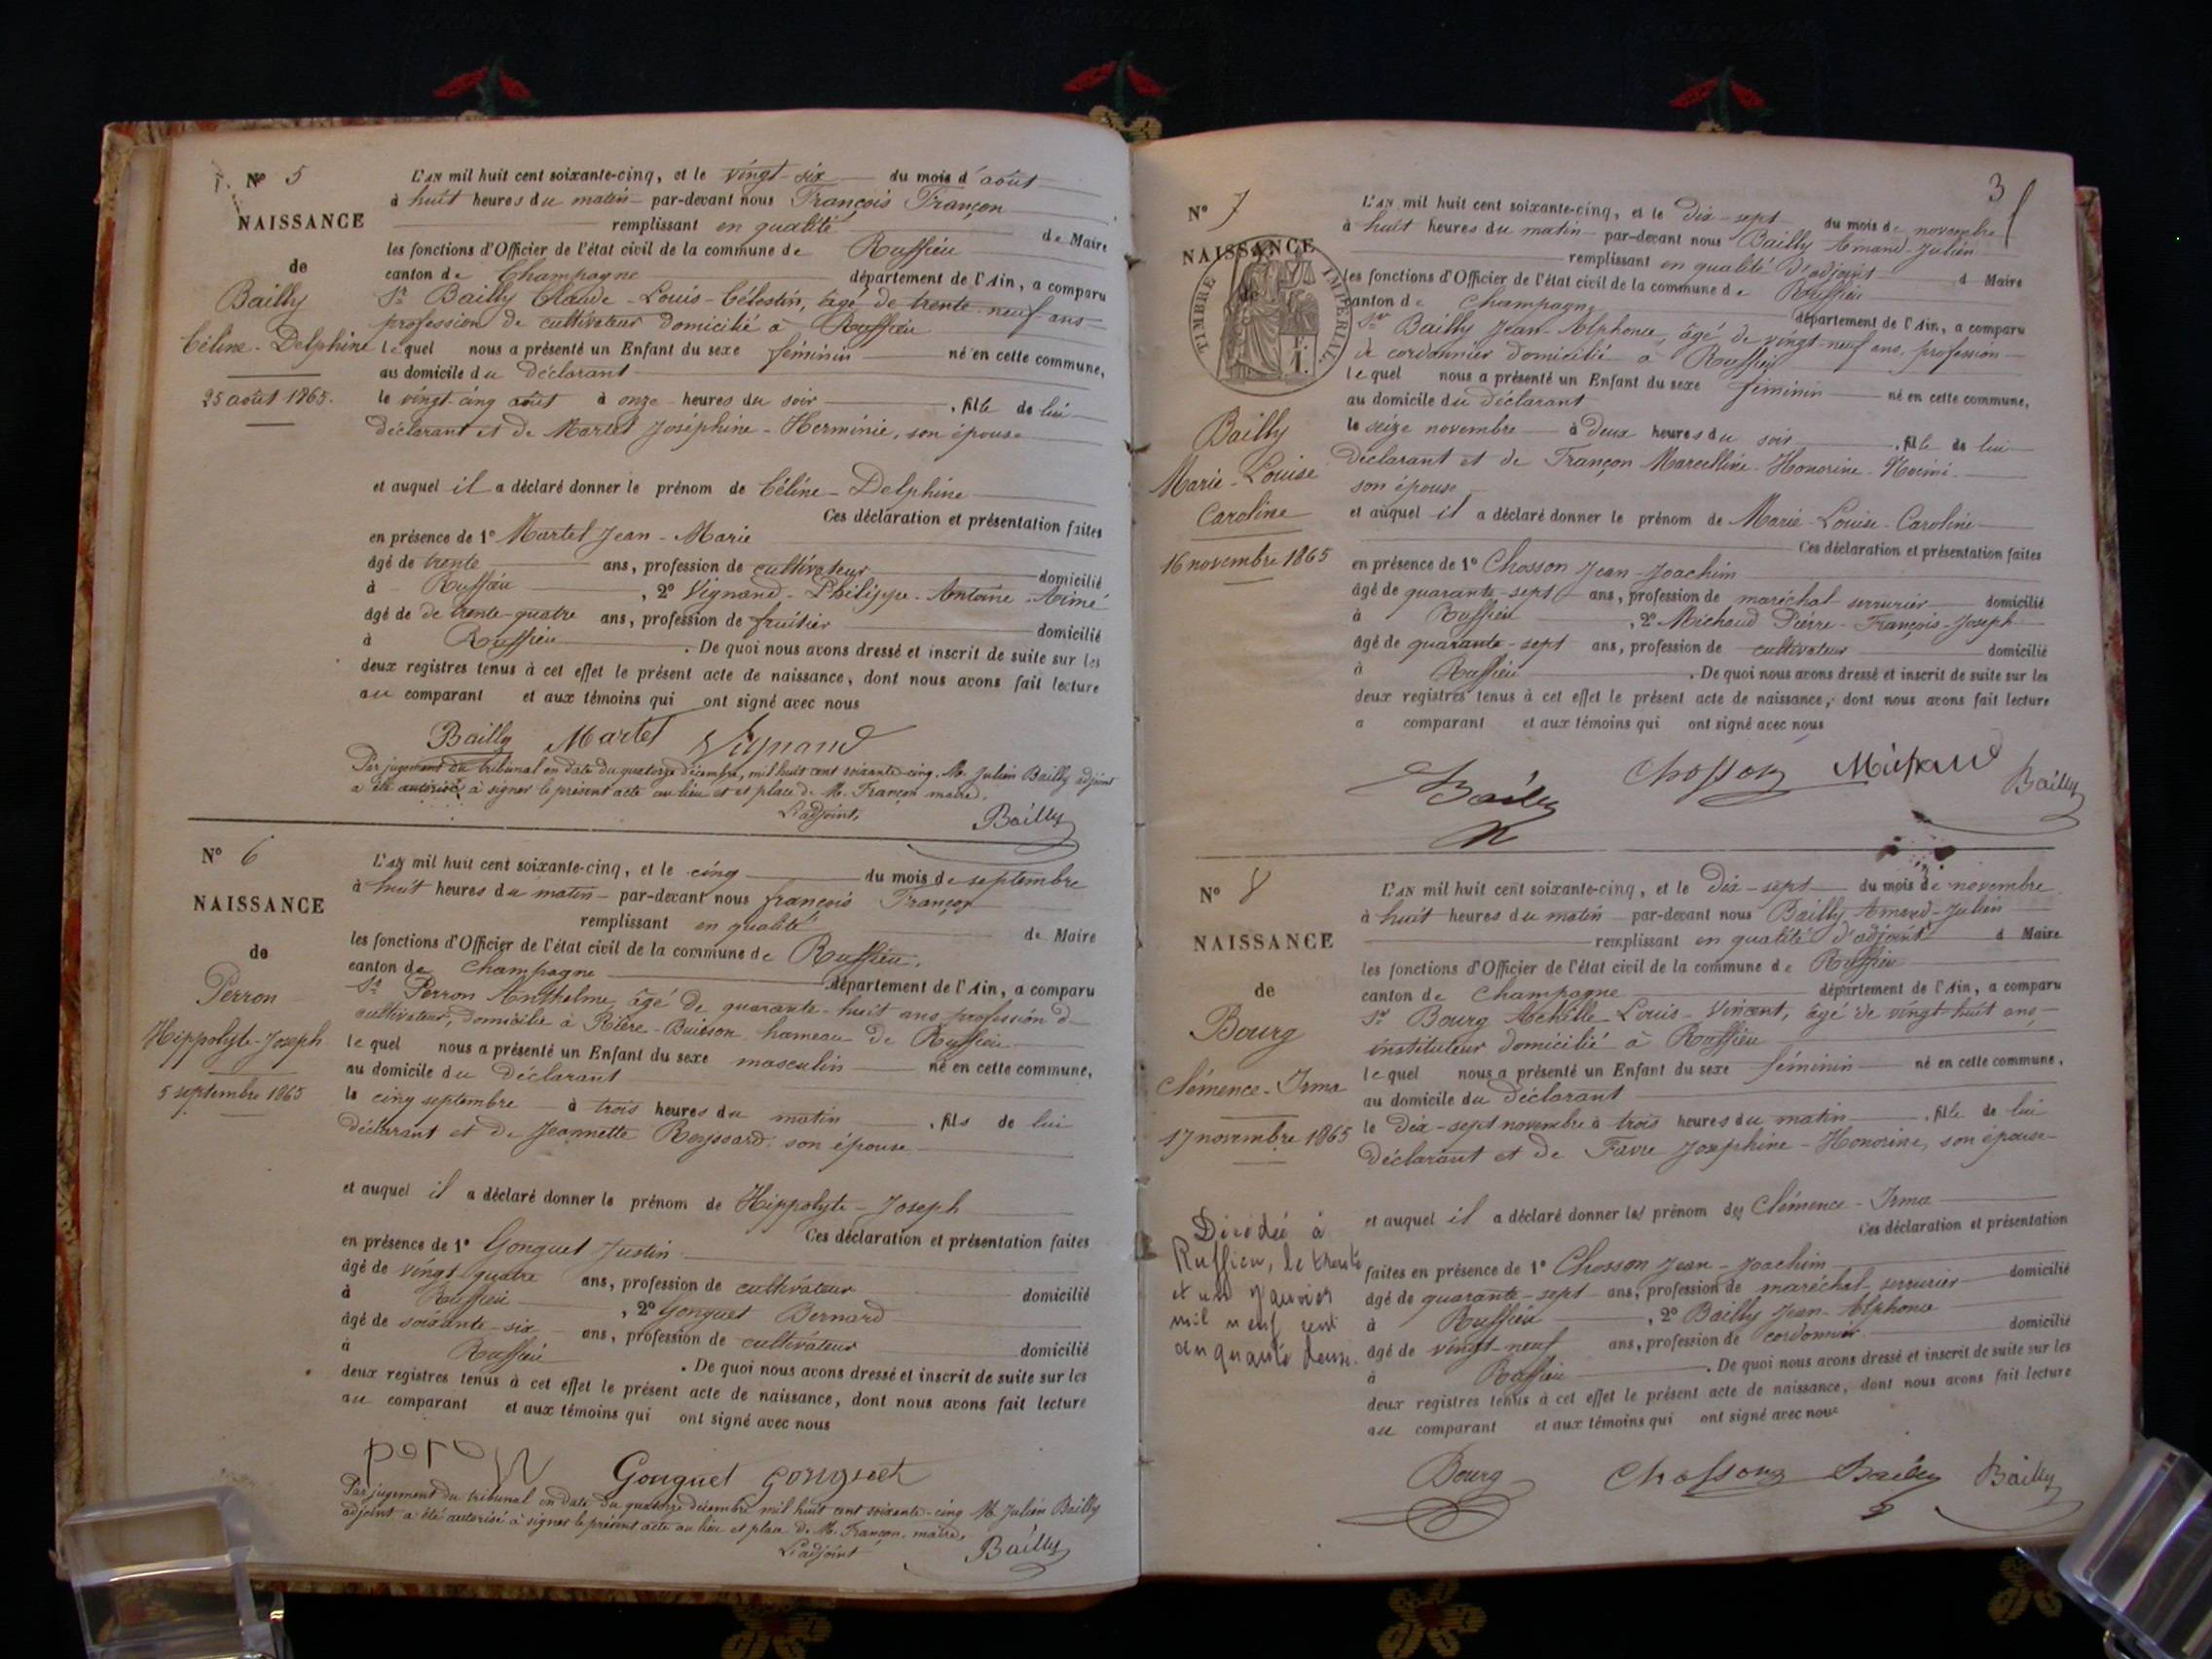 N° 5
NAISSANCE
de
Bailly
Céline-Delphine
25 août 1865.
L'AN mil huit cent soixante-cinq, et le vingt-six du mois d'août
à huit heures du matin par-devant nous François Françon
remplissant en qualité de Maire
les fonctions d'Officier de l'état civil de la commune de Ruffieu
canton de Champagne département de l'Ain, a comparu
Sr Bailly Claude-Louis-Célestin, âgé de trente-neuf ans
profession de cultivateur domicilié à Ruffieu
lequel nous a présenté un Enfant du sexe féminin né en cette commune,
au domicile du déclarant
le vingt-cinq août à onze heures du soir, fille de lui
déclarant et de Martel Joséphine-Herminie, son épouse
et auquel il a déclaré donner le prénom de Céline-Delphine
Ces déclaration et présentation faites
en présence de 1° Martel Jean-Marie
âgé de trente ans, profession de cultivateur domicilié
à Ruffieu, 2° Vignand-Philippe-Antoine-Aimé
âgé de de trente-quatre ans, profession de fruitier domicilié
à Ruffieu. De quoi nous avons dressé et inscrit de suite sur les
deux registres tenus à cet effet le présent acte de naissance, dont nous avons fait lecture
au comparant et aux témoins qui ont signé avec nous
Bailly Martel Vignand
Par jugement du tribunal en date du quatorze décembre, mil huit cent soixante-cinq. M. Julien Bailly adjoint
a été autorisé à signer le présent acte au lieu et et place de M. Françon maire.
L'adjoint, Bailly
N° 6
NAISSANCE
de
Perron
Hippolyte-Joseph
5 septembre 1865
L'AN mil huit cent soixante-cinq, et le cinq du mois de septembre
à huit heures du matin par-devant nous françois Françon
remplissant en qualité de Maire
les fonctions d'Officier de l'état civil de la commune de Ruffieu.
canton de Champagne département de l'Ain, a comparu
Sr Perron Anthelme, âgé de quarante-huit ans profession d
cultivateur, domicilié à hameau de Ruffieu
lequel nous a présenté un Enfant du sexe masculin né en cette commune,
au domicile du déclarant
le cinq septembre à trois heures du matin, fils de lui
déclarant et de Jeannette son épouse
et auquel il a déclaré donner le prénom de Hippolyte-Joseph
Ces déclaration et présentation faites
en présence de 1° Gonguet Justin
âgé de vingt quatre ans, profession de cultivateur domicilié
à Ruffieu, 2° Gonguet Bernard
âgé de soixante-six ans, profession de cultivateur domicilié
à Ruffieu. De quoi nous avons dressé et inscrit de suite sur les
deux registres tenus à cet effet le présent acte de naissance, dont nous avons fait lecture
au comparant et aux témoins qui ont signé avec nous
Gonguet Gonguet
Par jugement du tribunal en date du quatorze décembre mil huit cent soixante-cinq M. Julien Bailly
adjoint a été autorisé à signer le présent acte au lieu et place de M. Françon, maire.
L'adjoint Bailly
3
N° 7
NAISSANCE
de
TIMBRE IMPERIAL
Bailly
Marie-Louise
Caroline
16 novembre 1865
L'AN mil huit cent soixante-cinq, et le dix-sept du mois de novembre
à huit heures du matin par-devant nous Bailly Amand-Julien
remplissant en qualité d'adjoint d Maire
les fonctions d'Officier de l'état civil de la commune de Ruffieu
canton de Champagne département de l'Ain, a comparu
Sr Bailly Jean-Alphonse, âgé de vingt-neuf ans, profession
de cordonnier domicilié à Ruffieu
lequel nous a présenté un Enfant du sexe féminin né en cette commune,
au domicile du déclarant
le seize novembre à deux heures du soir, fille de lui
déclarant et de Françon Marcelline-Honorine-Noémi
son épouse
et auquel il a déclaré donner le prénom de Marie-Louise-Caroline
Ces déclaration et présentation faites
en présence de 1° Chosson Jean-Joachim
âgé de quarante-sept ans, profession de maréchal-serrurier domicilié
à Ruffieu, 2° Michaud Pierre-François-Joseph
âgé de quarante-sept ans, profession de cultivateur domicilié
à Ruffieu. De quoi nous avons dressé et inscrit de suite sur les
deux registres tenus à cet effet le présent acte de naissance, dont nous avons fait lecture
a comparant et aux témoins qui ont signé avec nous
Bailly Chosson Michaud Bailly
N° 8
NAISSANCE
de
Bourg
Clémence-Irma
17 novembre 1865
Décédée à
Ruffieu, le trente
et un janvier
mil neuf cent
cinquante deux.
L'AN mil huit cent soixante-cinq, et le dix-sept du mois de novembre
à huit heures du matin par-devant nous Bailly Amand-Julien
remplissant en qualité d'adjoint d Maire
les fonctions d'Officier de l'état civil de la commune de Ruffieu
canton de Champagne département de l'Ain, a comparu
Sr Bourg Achille-Louis-Vincent, âgé de vingt-huit ans
instituteur domicilié à Ruffieu
lequel nous a présenté un Enfant du sexe féminin né en cette commune,
au domicile du déclarant
le dix-sept novembre à trois heures du matin, fille de lui
déclarant et de Favre Joséphine-Honorine, son épouse
et auquel il a déclaré donner les prénom des Clémence-Irma
Ces déclaration et présentation
faites en présence de 1° Chosson Jean-Joachim
âgé de quarante-sept ans, profession de maréchal-serrurier domicilié
à Ruffieu, 2° Bailly Jean-Alphonse
âgé de vingt-neuf ans, profession de cordonnier domicilié
à Ruffieu. De quoi nous avons dressé et inscrit de suite sur les
deux registres tenus à cet effet le présent acte de naissance, dont nous avons fait lecture
au comparant et aux témoins qui ont signé avec nous
Bourg Chosson Bailly Bailly